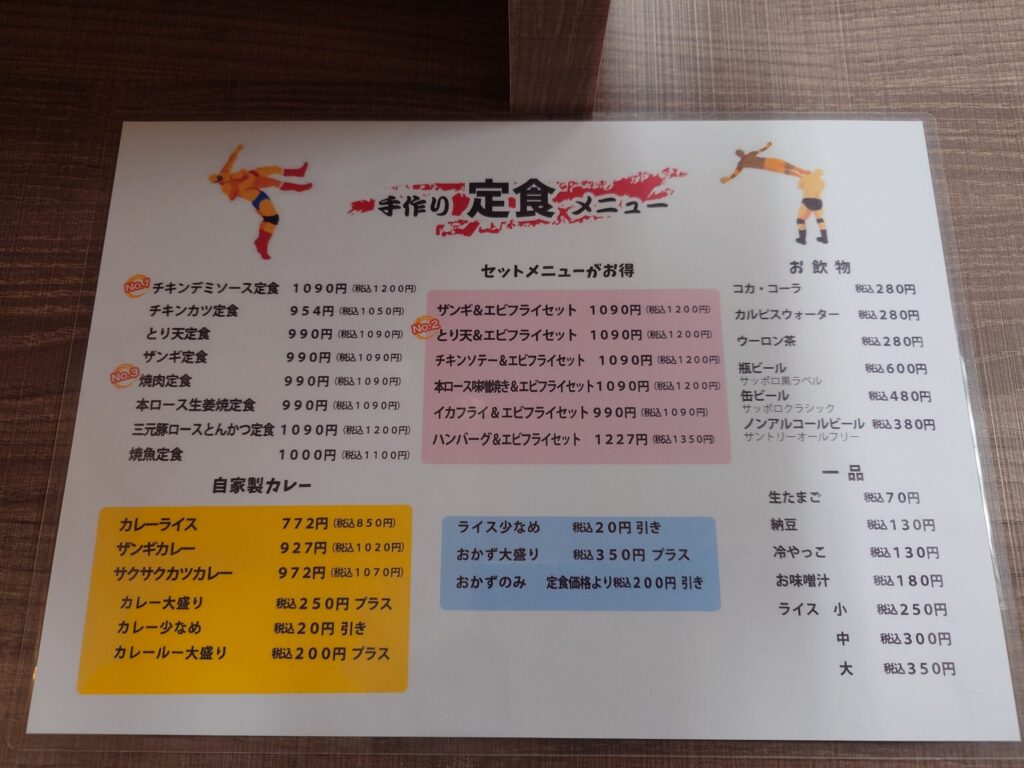 手作り 定食 メニュー
No.1 チキンデミソース定食 1090円(税込1200円)
チキンカツ定食 954円(税込1050円)
とり天定食 990円(税込1090円)
ザンギ定食 990円(税込1090円)
No.3 焼肉定食 990円(税込1090円)
本ロース生姜焼定食 990円(税込1090円)
三元豚ロースとんかつ定食 1090円(税込1200円)
焼魚定食 1000円(税込1100円)
自家製カレー
カレーライス 772円(税込850円)
ザンギカレー 927円(税込1020円)
サクサクカツカレー 972円(税込1070円)
カレー大盛り 税込250円 プラス
カレー少なめ 税込20円 引き
カレールー大盛り 税込200円 プラス
セットメニューがお得
ザンギ&エビフライセット 1090円(税込1200円)
No.2 とり天&エビフライセット 1090円(税込1200円)
チキンソテー&エビフライセット 1090円(税込1200円)
本ロース味噌焼き&エビフライセット 1090円(税込1200円)
イカフライ&エビフライセット 990円(税込1090円)
ハンバーグ&エビフライセット 1227円(税込1350円)
ライス少なめ 税込20円 引き
おかず大盛り 税込350円 プラス
おかずのみ 定食価格より税込200円 引き
お飲物
コカ・コーラ 税込280円
カルピスウォーター 税込280円
ウーロン茶 税込280円
瓶ビール 税込600円
サッポロ黒ラベル
缶ビール 税込480円
サッポロクラシック
ノンアルコールビール 税込380円
サントリーオールフリー
一品
生たまご 税込70円
納豆 税込130円
冷やっこ 税込130円
お味噌汁 税込180円
ライス 小 税込250円
中 税込300円
大 税込350円